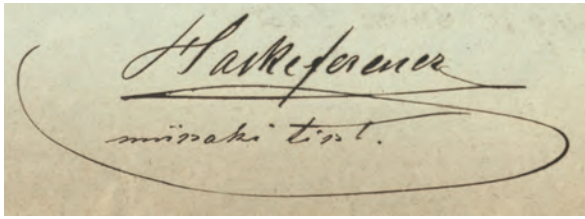 Laske ferencz
műszaki tiszt.